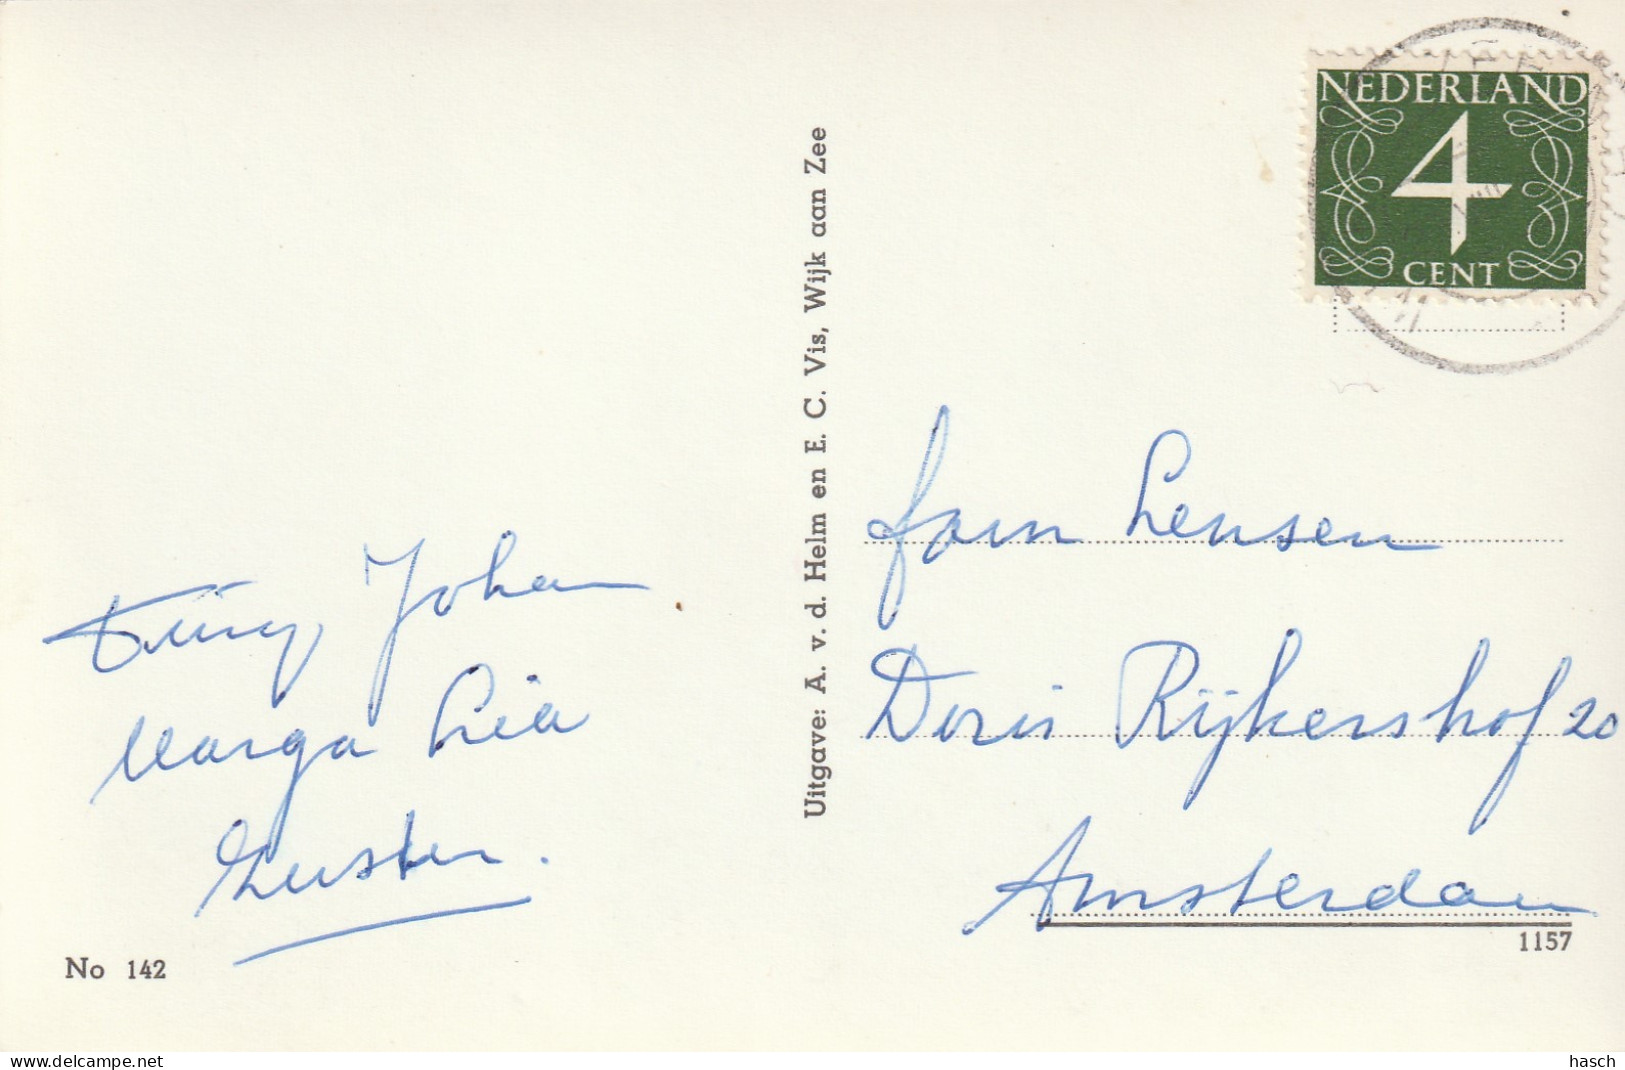 NEDERLAND
4
CENT
Uitgave: A. v. d. Helm en E. C. Vis, Wijk aan Zee
fam Leusen
Doris Rijkershof 20
Amsterdam
1157
Johan
Marga Lia
No 142
delcampe.net
hasch